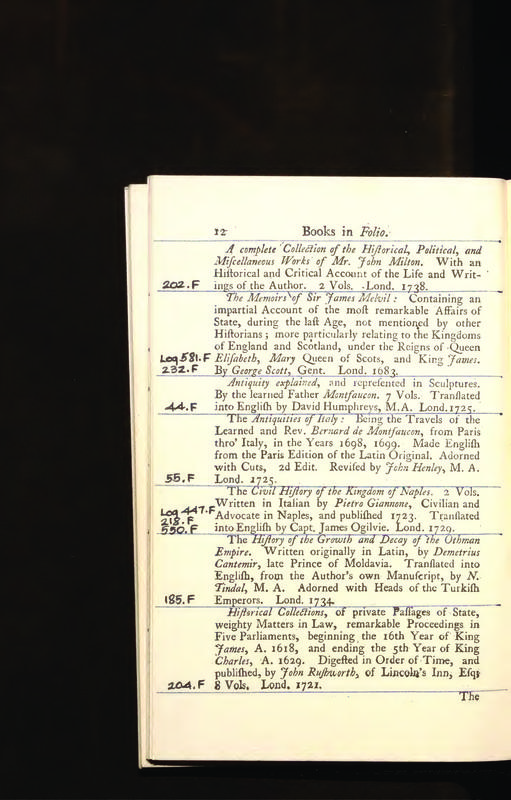 12 Books in Folio.
A complete Collection of the Hiſtorical, Political, and
Miſcellaneous Works of Mr. John Milton. With an
Hiſtorical and Critical Account of the Life and Writ-
202.F ings of the Author. 2 Vols. Lond. 1738.
The Memoirs of Sir James Melvil: Containing an
impartial Account of the moſt remarkable Affairs of
State, during the laſt Age, not mentioned by other
Hiſtorians; more particularly relating to the Kingdoms
of England and Scotland, under the Reigns of Queen
Log 581.F Eliſabeth, Mary Queen of Scots, and King James.
232.F By George Scott, Gent. Lond. 1683.
Antiquity explained, and repreſented in Sculptures.
By the learned Father Montfaucon. 7 Vols. Tranſlated
44.F into Engliſh by David Humphreys, M.A. Lond. 1725.
The Antiquities of Italy: Being the Travels of the
Learned and Rev. Bernard de Montfaucon, from Paris
thro' Italy, in the Years 1698, 1699. Made Engliſh
from the Paris Edition of the Latin Original. Adorned
with Cuts, 2d Edit. Reviſed by John Henley, M. A.
55.F Lond. 1725.
The Civil Hiſtory of the Kingdom of Naples. 2 Vols.
Log 447.F Written in Italian by Pietro Giannone, Civilian and
218.F Advocate in Naples, and publiſhed 1723. Tranſlated
550.F into Engliſh by Capt. James Ogilvie. Lond. 1729.
The Hiſtory of the Growth and Decay of the Othman
Empire. Written originally in Latin, by Demetrius
Cantemir, late Prince of Moldavia. Tranſlated into
Engliſh, from the Author's own Manuſcript, by N.
Tindal, M. A. Adorned with Heads of the Turkiſh
185.F Emperors. Lond. 1734.
Hiſtorical Collections, of private Paſſages of State,
weighty Matters in Law, remarkable Proceedings in
Five Parliaments, beginning the 16th Year of King
James, A. 1618, and ending the 5th Year of King
Charles, A. 1629. Digeſted in Order of Time, and
publiſhed, by John Ruſhworth, of Lincoln's Inn, Eſq;
204.F 8 Vols. Lond. 1721.
The